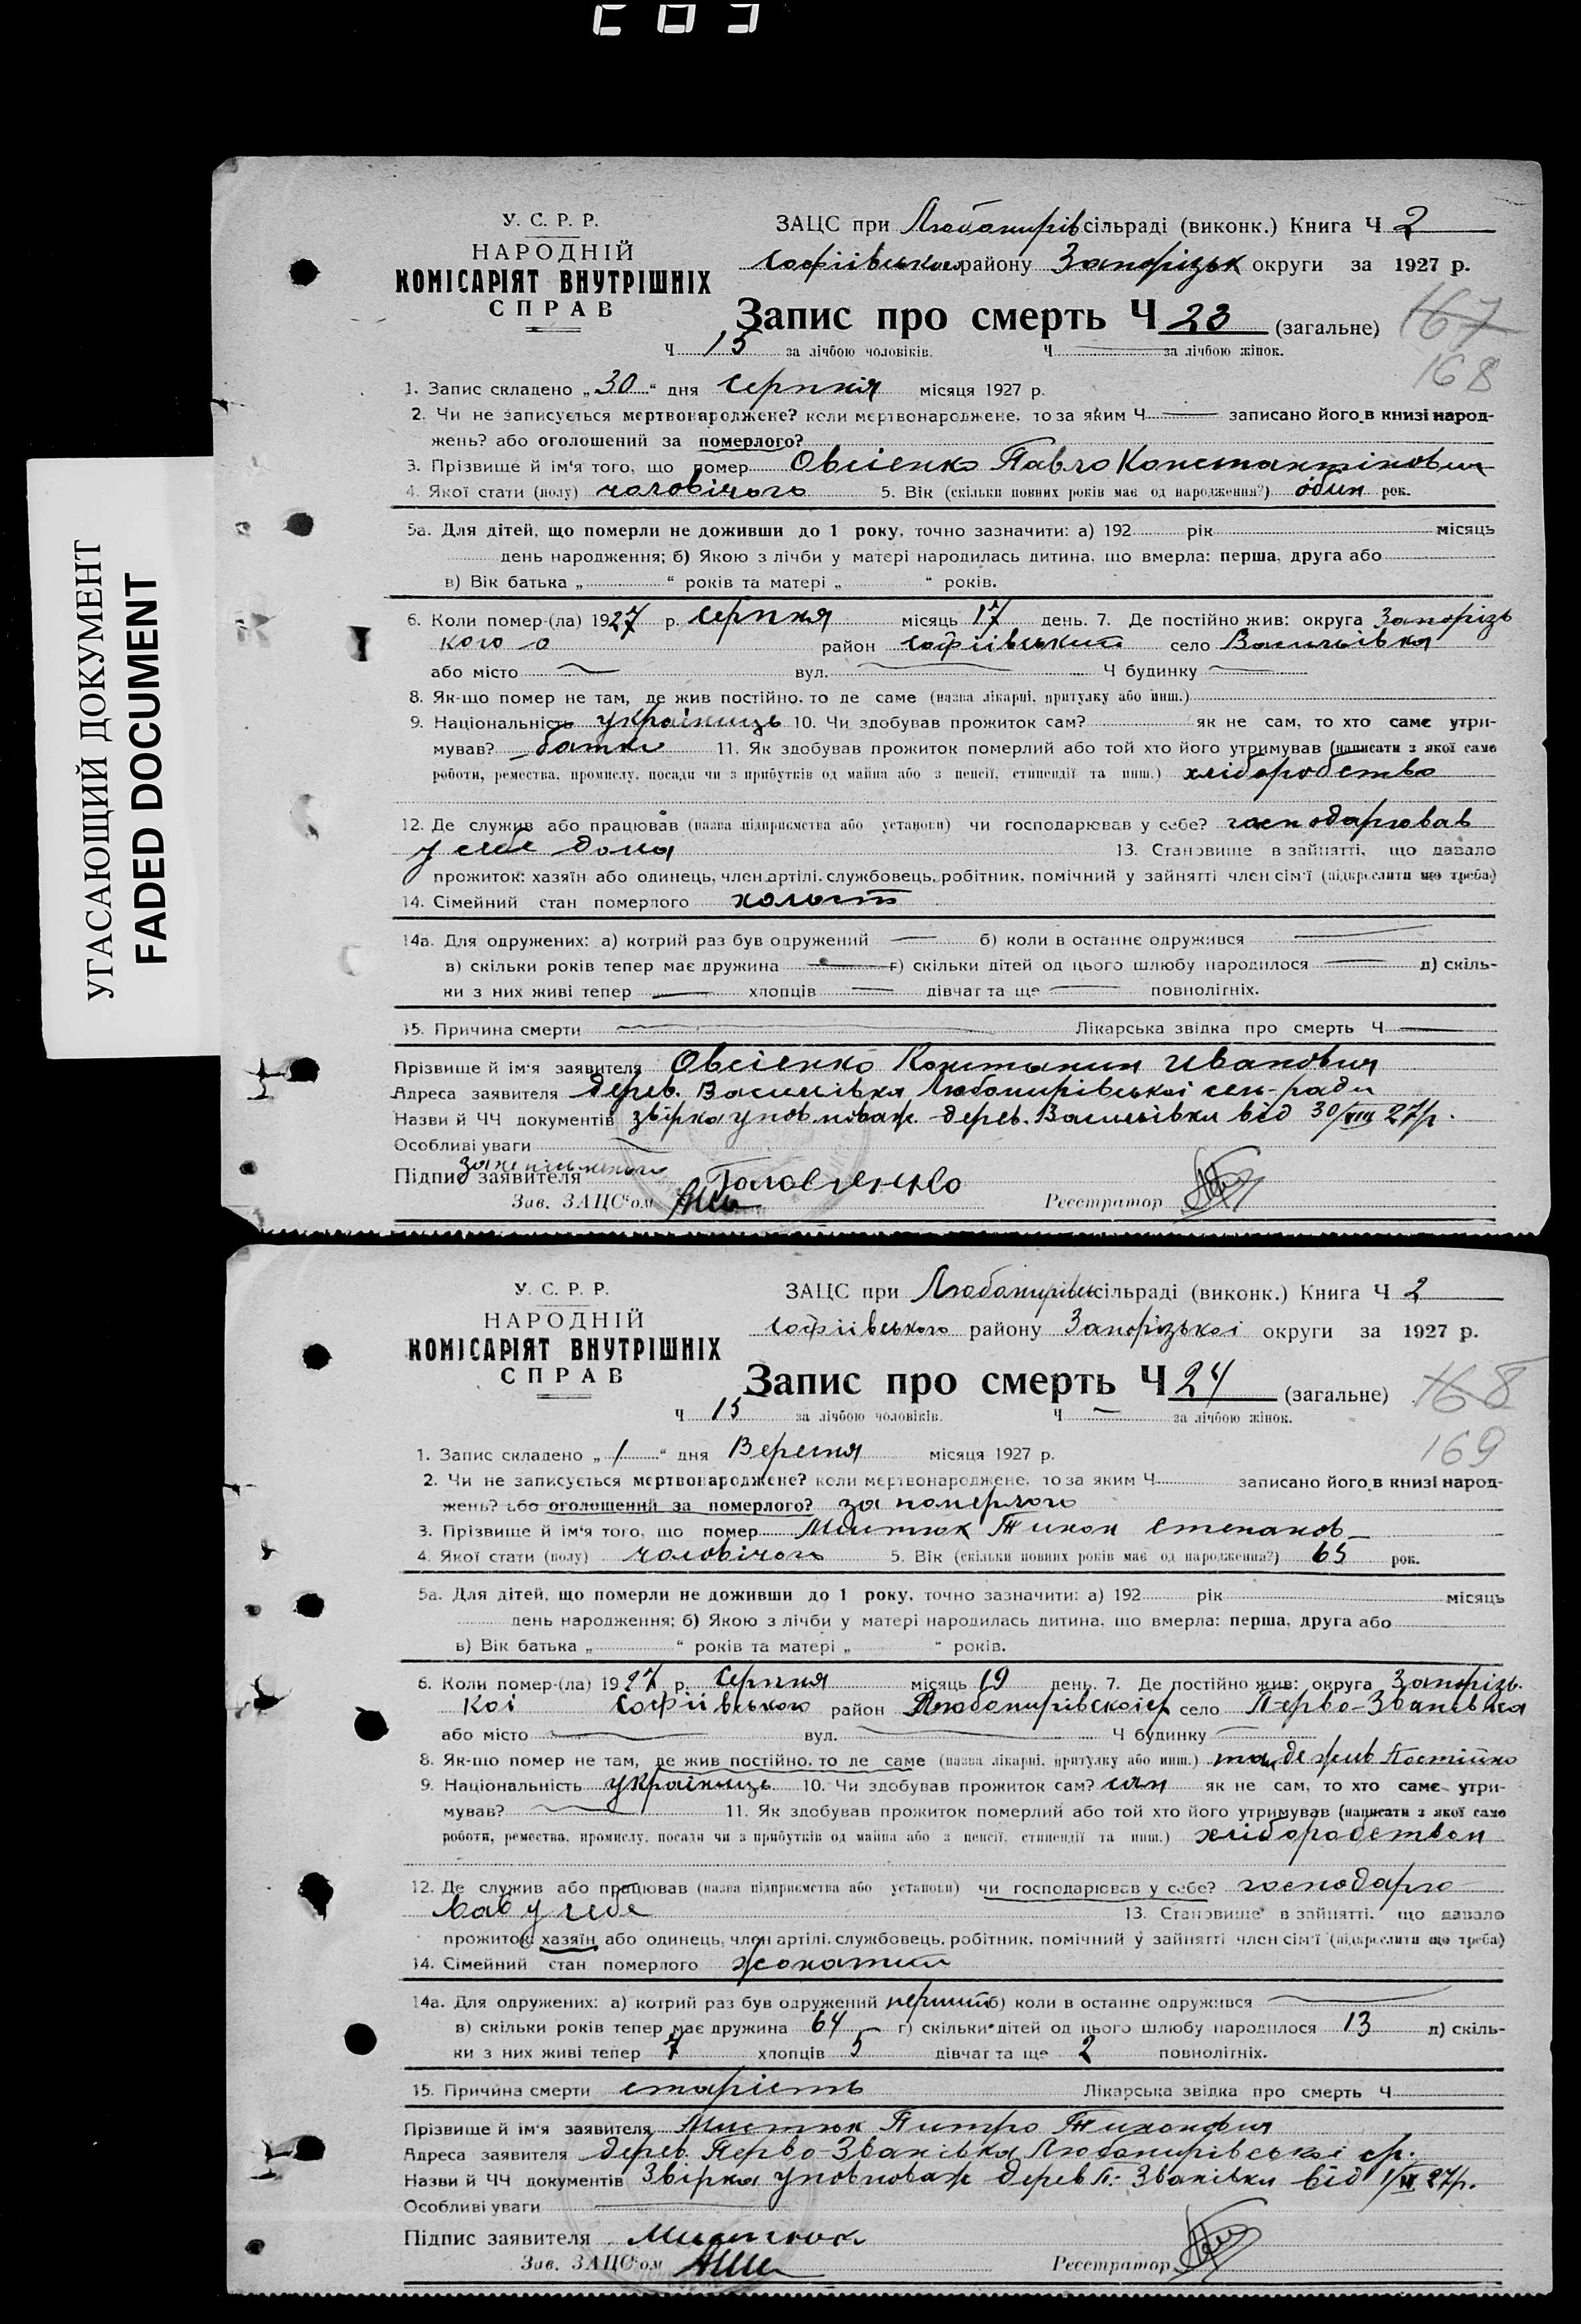 УГАСАЮЩИЙ ДОКУМЕНТ
FADED DOCUMENT
У. С. Р. Р.
НАРОДНІЙ
КОМІСАРІЯТ ВНУТРІШНІХ
СПРАВ
ЗАЦС при Любомирів сільраді (виконк.) Книга Ч 2
Софіївськ району Запорізьк округи за 1927 р.
Запис про смерть Ч 23 (загальне)
167
168
Ч 15 за лічбою чоловіків. Ч за лічбою жінок.
1. Запис складено „ 30 “ дня серпня місяця 1927 р.
2. Чи не записується мертвонароджене? коли мертвонароджене, то за яким Ч записано його в книзі народ-
жень? або оголошений за померлого?
3. Прізвище й ім'я того, що помер Овсіенко Павло Константінович
4. Якої стати (полу) чоловічого 5. Вік (скільки повних років має од народження?) один рок.
5а. Для дітей, що померли не доживши до 1 року, точно зазначити: а) 192 рік місяць
день народження; б) Якою з лічби у матері народилась дитина, що вмерла: перша, друга або
в) Вік батька „ “ років та матері „ “ років.
6. Коли помер-(ла) 1927 р. серпня місяць 17 день. 7. Де постійно жив: округа Запорізь
кого о район Софіівський село Васильівка
або місто вул. Ч будинку
8. Як-що помер не там, де жив постійно, то де саме (назва лікарні, притулку або инш.)
9. Національність украінець 10. Чи здобував прожиток сам? як не сам, то хто саме утри-
мував? батько 11. Як здобував прожиток померлий або той хто його утримував (написати з якої саме
роботи, ремества, промислу, посади чи з прибутків од майна або з пенсії, стипендії та инш.) хліборобство
12. Де служив або працював (назва підприємства або установи) чи господарював у себе? господарював
у себе дома 13. Становище в зайнятті, що давало
прожиток: хазяїн або одинець, член артілі, службовець, робітник, помічний у зайнятті член сім'ї (підкреслити що треба)
14. Сімейний стан померлого холост
14а. Для одружених: а) котрий раз був одружений б) коли в останнє одружився
в) скільки років тепер має дружина г) скільки дітей од цього шлюбу народилося д) скіль-
ки з них живі тепер хлопців дівчат та ще повнолітніх.
15. Причина смерти Лікарська звідка про смерть Ч
Прізвище й ім'я заявителя Овсіенко Констынтин Иванович
Адреса заявителя дерев. Васильівка Любомирівськоі сель-ради
Назви й ЧЧ документів звірка уповноваж. дерев. Васильівки від 30/VIII 27р.
Особливі уваги
Підпис заявителя за неписьменого Головченко
Зав. ЗАЦС'ом Реєстратор
У. С. Р. Р.
НАРОДНІЙ
КОМІСАРІЯТ ВНУТРІШНІХ
СПРАВ
ЗАЦС при Любомирівс сільраді (виконк.) Книга Ч 2
Софіівського району Запорізькоі округи за 1927 р.
Запис про смерть Ч 24 (загальне)
168
169
Ч 15 за лічбою чоловіків. Ч за лічбою жінок.
1. Запис складено „ 1 “ дня Вересня місяця 1927 р.
2. Чи не записується мертвонароджене? коли мертвонароджене, то за яким Ч записано його в книзі народ-
жень? або оголошений за померлого? за померлого
3. Прізвище й ім'я того, що помер Мистюк Тихон Степанов
4. Якої стати (полу) чоловічого 5. Вік (скільки повних років має од народження?) 65 рок.
5а. Для дітей, що померли не доживши до 1 року, точно зазначити: а) 192 рік місяць
день народження; б) Якою з лічби у матері народилась дитина, що вмерла: перша, друга або
в) Вік батька „ “ років та матері „ “ років.
6. Коли помер-(ла) 1927 р. серпня місяць 19 день. 7. Де постійно жив: округа Запорізь.
коі Софіівського район Любомирівскоі ср село Перво-Званівка
або місто вул. Ч будинку
8. Як-що помер не там, де жив постійно, то де саме (назва лікарні, притулку або инш.) там де жив постійно
9. Національність украінець 10. Чи здобував прожиток сам? сам як не сам, то хто саме утри-
мував? 11. Як здобував прожиток померлий або той хто його утримував (написати з якої саме
роботи, ремества, промислу, посади чи з прибутків од майна або з пенсії, стипендії та инш.) хліборобством
12. Де служив або працював (назва підприємства або установи) чи господарював у себе? господарю
вав у себе 13. Становище в зайнятті, що давало
прожиток: хазяїн або одинець, член артілі, службовець, робітник, помічний у зайнятті член сім'ї (підкреслити що треба)
14. Сімейний стан померлого жонатий
14а. Для одружених: а) котрий раз був одружений перший б) коли в останнє одружився
в) скільки років тепер має дружина 64 г) скільки дітей од цього шлюбу народилося 13 д) скіль-
ки з них живі тепер 7 хлопців 5 дівчат та ще 2 повнолітніх.
15. Причина смерти старість Лікарська звідка про смерть Ч
Прізвище й ім'я заявителя Мистюк Питро Тихонович
Адреса заявителя дерев. Перво-Званівка Любомирівськоі ср.
Назви й ЧЧ документів Звірка уповноваж дерев П.-Званівки від 1/IX 27р.
Особливі уваги
Підпис заявителя Мистюк
Зав. ЗАЦС'ом Реєстратор